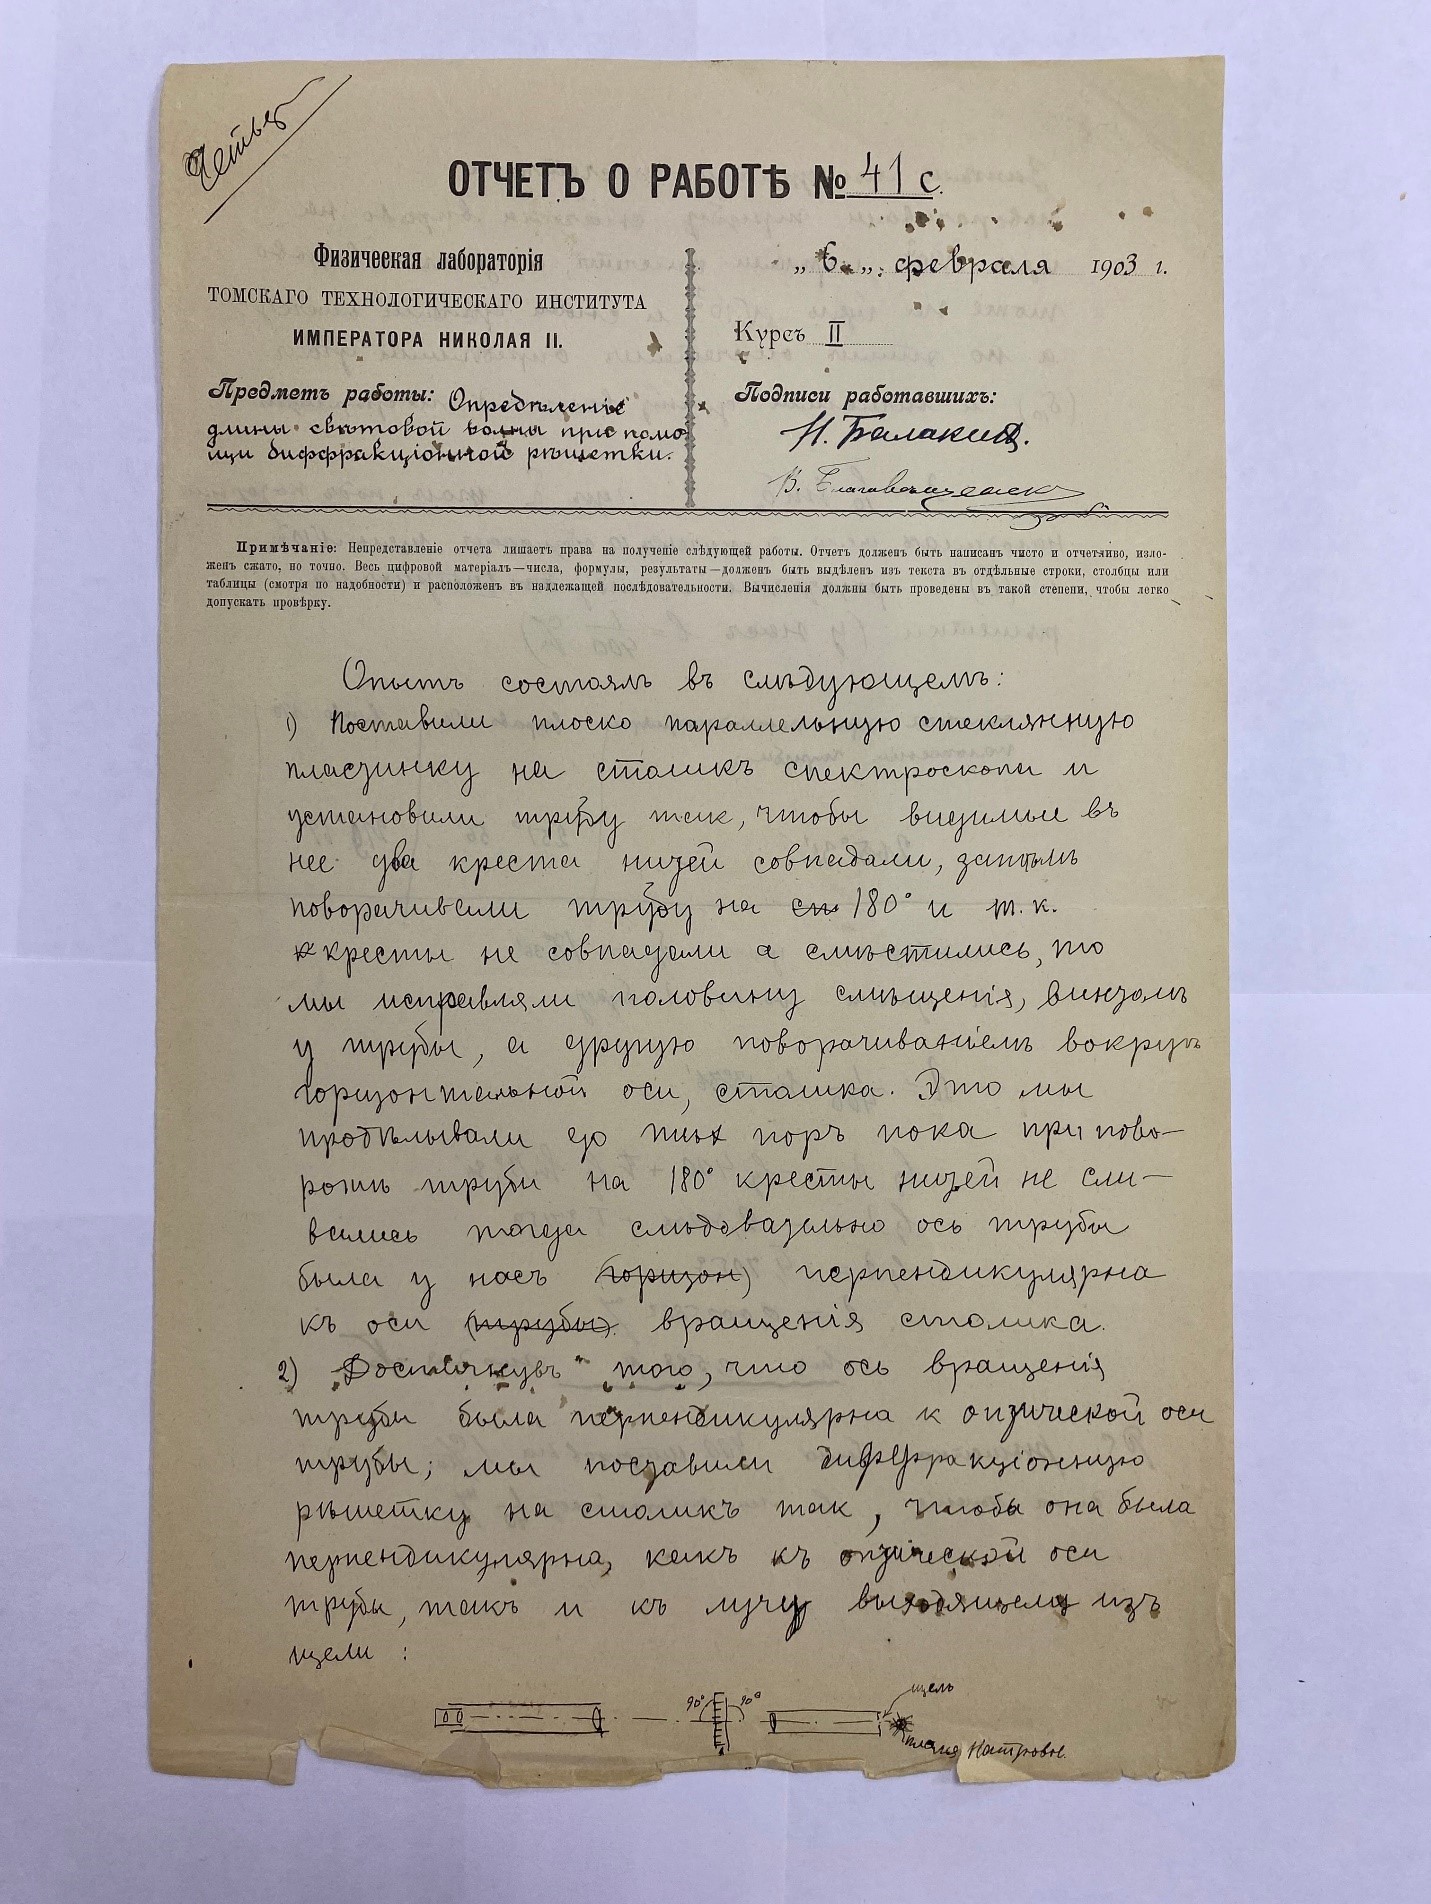 ОТЧЕТЪ О РАБОТѢ № 41 с.
Физическая лабораторія
ТОМСКАГО ТЕХНОЛОГИЧЕСКАГО ИНСТИТУТА
ИМПЕРАТОРА НИКОЛАЯ II.
Предметъ работы: Опредѣленіе
длины свѣтовой волны при помо-
щи диффракціонной рѣшетки.
„ 6 „ февраля 1903 г.
Курсъ II
Подписи работавшихъ:
Н. Балакин
В. Благовещенск
Примѣчаніе: Непредставленіе отчета лишаетъ права на полученіе слѣдующей работы. Отчетъ долженъ быть написанъ чисто и отчетливо, изло-
женъ сжато, но точно. Весь цифровой матеріалъ—числа, формулы, результаты—долженъ быть выдѣленъ изъ текста въ отдѣльные строки, столбцы или
таблицы (смотря по надобности) и расположенъ въ надлежащей послѣдовательности. Вычисленія должны быть проведены въ такой степени, чтобы легко
допускать провѣрку.
Опытъ состоялъ въ слѣдующемъ:
1) Поставили плоско параллельную стеклянную
пластинку на столикъ спектроскопа и
установили трубу так, чтобы видимые въ
нее два креста нитей совпадали, затѣмъ
поворачивали трубу на сп 180° и т. к.
к кресты не совпадали а смѣстились, то
мы исправляли половину смѣщенія, винтомъ
у трубы, а другую поворачиваніемъ вокругъ
горизонтальной оси, столика. Это мы
продѣлывали до тѣх поръ пока при пово-
ротѣ трубы на 180° кресты нитей не сли-
вались тогда слѣдовательно ось трубы
была у насъ (горизон) перпендикулярна
къ оси (трубы) вращенія столика.
2) Достигнувъ того, что ось вращенія
трубы была перпендикулярна к оптической оси
трубы; мы поставили диффракціонную
рѣшетку на столикъ так, чтобы она была
перпендикулярна, какъ къ оптической оси
трубы, такъ и къ лучу выходящему изъ
щели :
90° 90° щель
пламя Натровое.